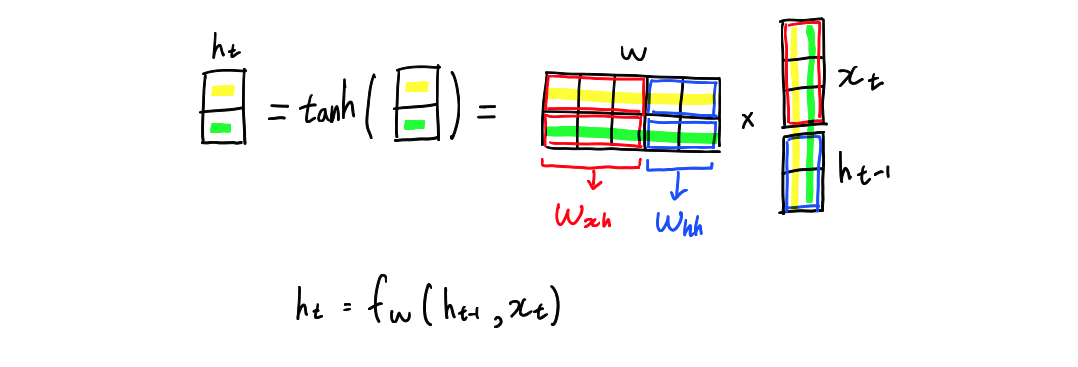 hₜ = tanh( ) = W × xₜ
hₜ₋₁
Wₓₕ Wₕₕ
hₜ = f_w(hₜ₋₁, xₜ)